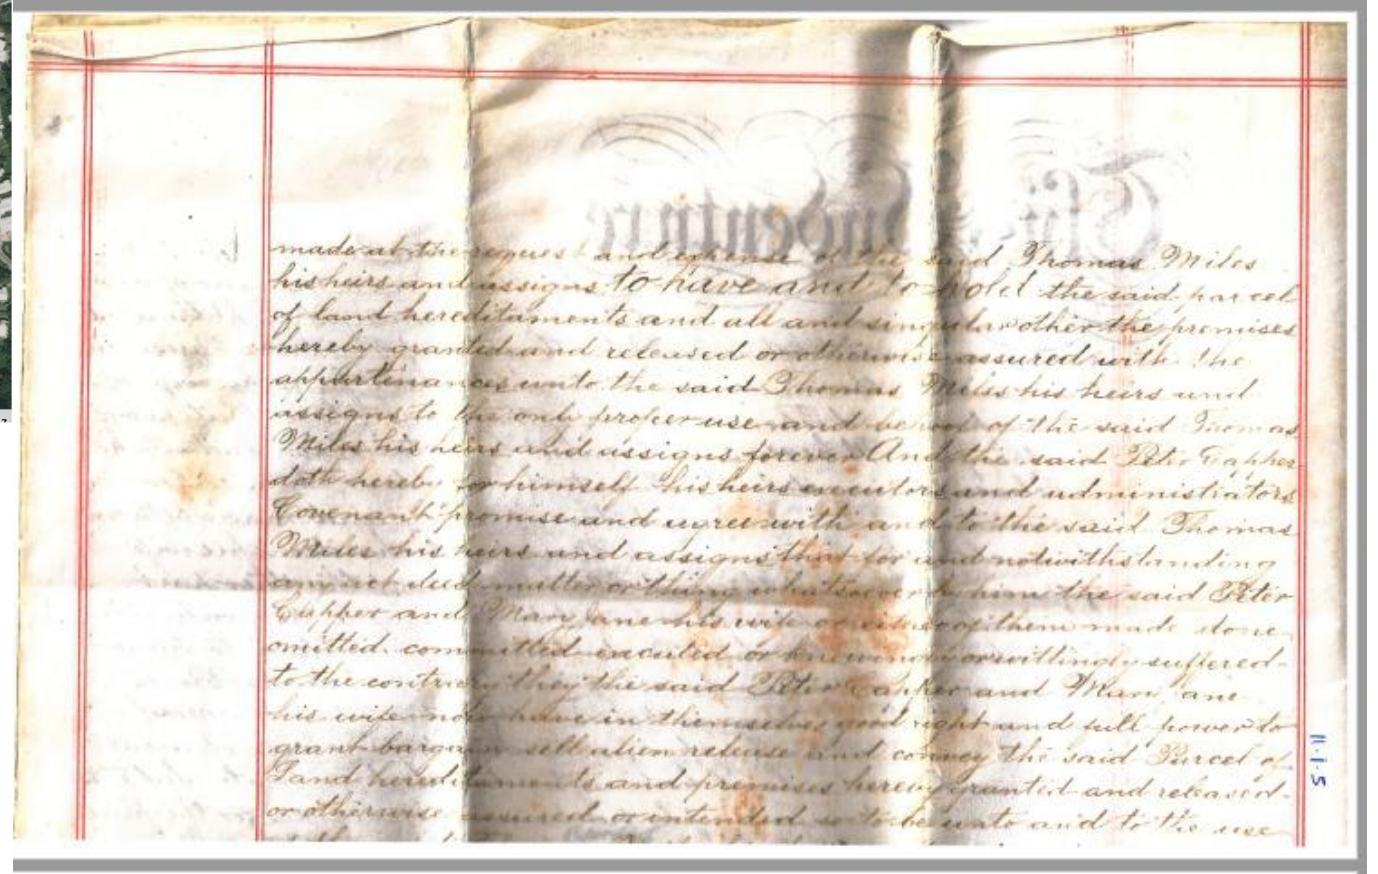 made at the request and expense of the said Thomas Miles
his heirs and assigns to have and to hold the said parcel
of land hereditaments and all and singular other the premises
hereby granted and released or otherwise assured with the
appurtenances unto the said Thomas Miles his heirs and
assigns to the only proper use and behoof of the said Thomas
Miles his heirs and assigns forever And the said Peter Capper
doth hereby for himself his heirs executors and administrators
Covenant promise and agree with and to the said Thomas
Miles his heirs and assigns that for and notwithstanding
any act deed matter or thing whatsoever by him the said Peter
Capper and Mary Jane his wife or either of them made done
omitted committed executed or knowingly or willingly suffered
to the contrary they the said Peter Capper and Mary Jane
his wife now have in themselves good right and full power to
grant bargain sell alien release and convey the said Parcel of
Land hereditaments and premises hereby granted and released
or otherwise assured or intended so to be unto and to the use
This Indenture
11-1-5